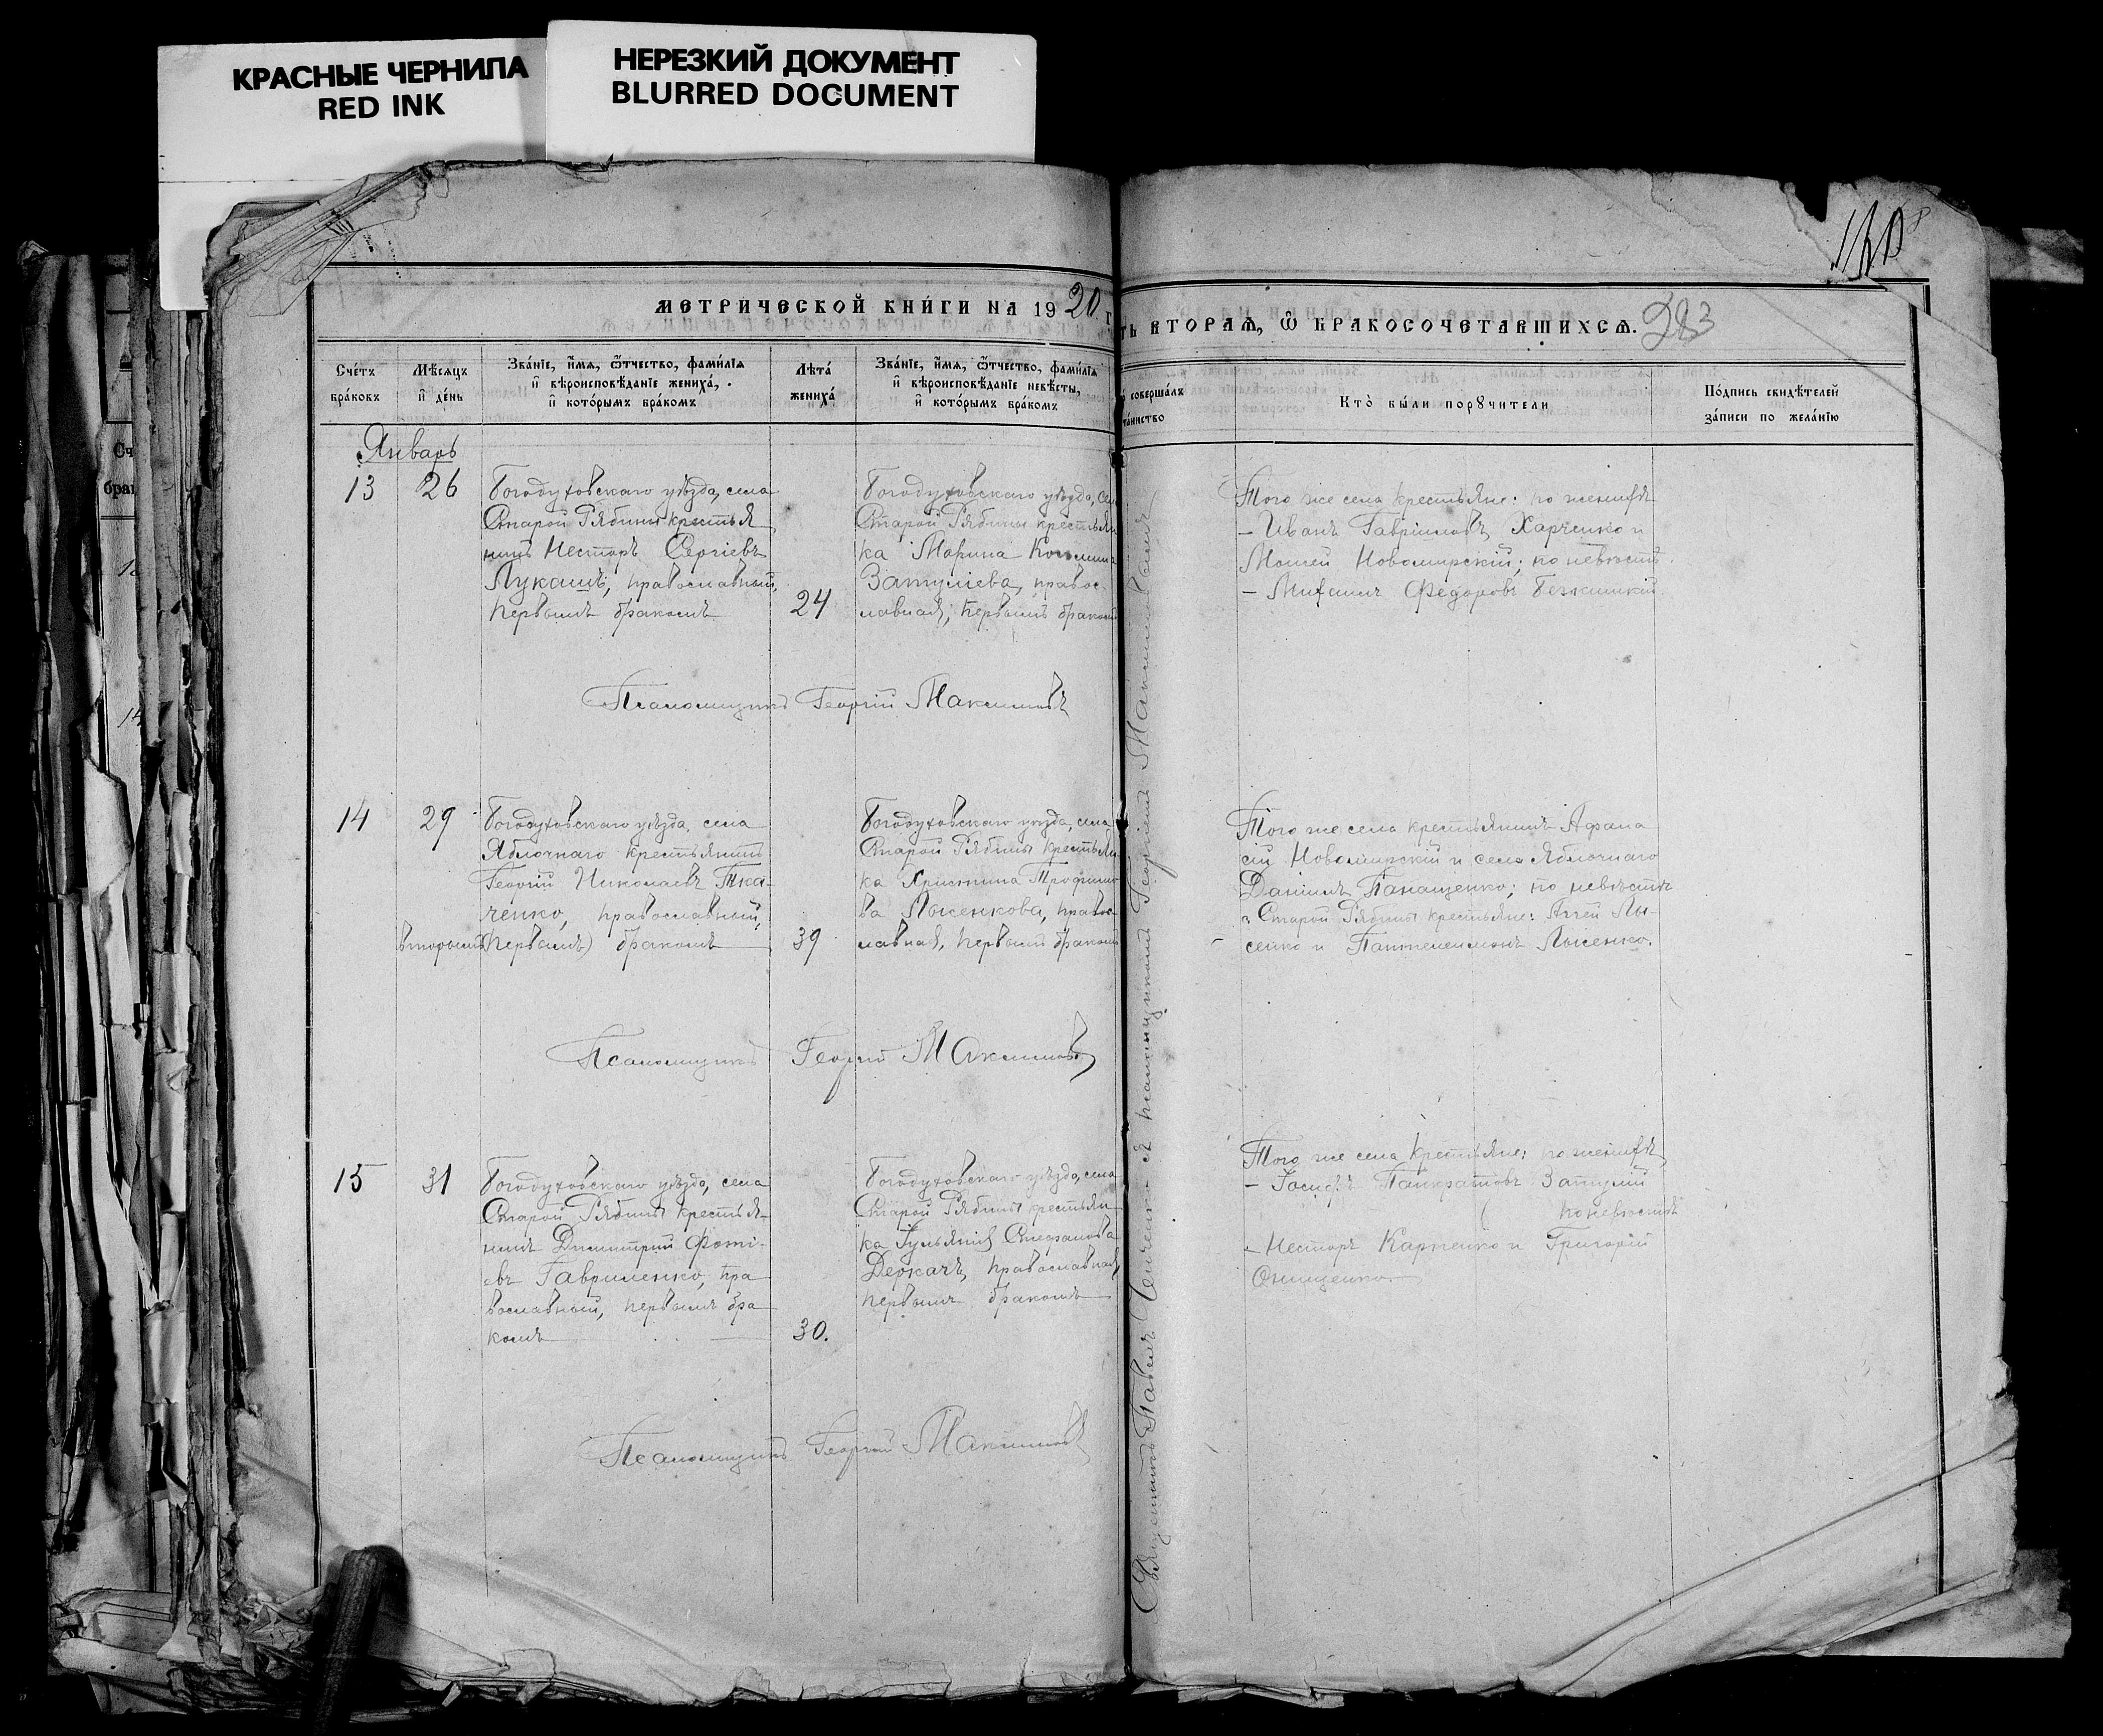 КРАСНЫЕ ЧЕРНИЛА
RED INK
НЕРЕЗКИЙ ДОКУМЕНТ
BLURRED DOCUMENT
283
МЕТРИЧЕСКОЙ КНИ́ГИ НА 1920 г
ТЬ ВТОРАѦ, Ѡ БРАКОСОЧЕТАВШИХСѦ.
Сче́тъ бра́ковъ
Мѣ́сяцъ и҆ де́нь
Зва́нїе, и҆́мѧ, ѻ҆́тчество, фами́лїѧ и҆ вѣроисповѣ́данїе жениха́, и҆ кото́рымъ бра́комъ
Лѣта́ жениха́
Зва́нїе, и҆́мѧ, ѻ҆́тчество, фами́лїѧ и҆ вѣроисповѣ́данїе невѣ́сты, и҆ кото́рымъ бра́комъ
соверша́лъ
та́инство
Кто̀ бы́ли порꙋчи́тели
По́дпись свидѣ́телей за́писи по жела́нїю
Январь
13
26
Богодуховскаго уѣзда, села
Старой Рябины крестья
нинъ Несторъ Сергіевъ
Лукашъ, православный,
первымъ бракомъ
24
Богодуховскаго уѣзда, сел
Старой Рябины крестьян
ка Марина
Затуліева, правос-
лавная, первымъ бракомъ
Того же села крестьяне: по женихѣ
- Иванъ Гавріиловъ Харченко и
Моисей Новомирскій; по невѣстѣ
- Михаилъ Федоровъ
Псаломщикъ Георгій Максимовъ
14
29
Богодуховскаго уѣзда, села
Яблочнаго крестьянинъ
Георгій Николаевъ Тка-
ченко, православный,
вторымъ (первымъ) бракомъ
39
Богодуховскаго уѣзда, села
Старой Рябины крестьян
ка Христина Трофимо
ва Лысенкова, правос-
лавная, первымъ бракомъ
Того же села крестьянинъ Афана
сій Новомирскій и села Яблочнаго
Даніилъ Панащенко; по невѣстѣ
Старой Рябины крестьяне: Лы-
сенко и Пантелеимонъ Лысенко.
Псаломщикъ Георгій Максимовъ
15
31
Богодуховскаго уѣзда, села
Старой Рябины крестья-
нинъ Димитрій Фоті-
евъ Гавриленко, пра
вославный, первымъ бра
комъ
30.
Богодуховскаго уѣзда, села
Старой Рябины крестьян
ка Іульянія Стефанова
Деркачъ, православная,
первымъ бракомъ
Того же села крестьяне: по женихѣ
- Іосифъ Панкратовъ Затулій
по невѣстѣ
- Несторъ Карпенко и Григорій
Онищенко.
Псаломщикъ Георгій Максимовъ
Священникъ Павелъ съ псаломщикомъ Георгіемъ Максимовымъ